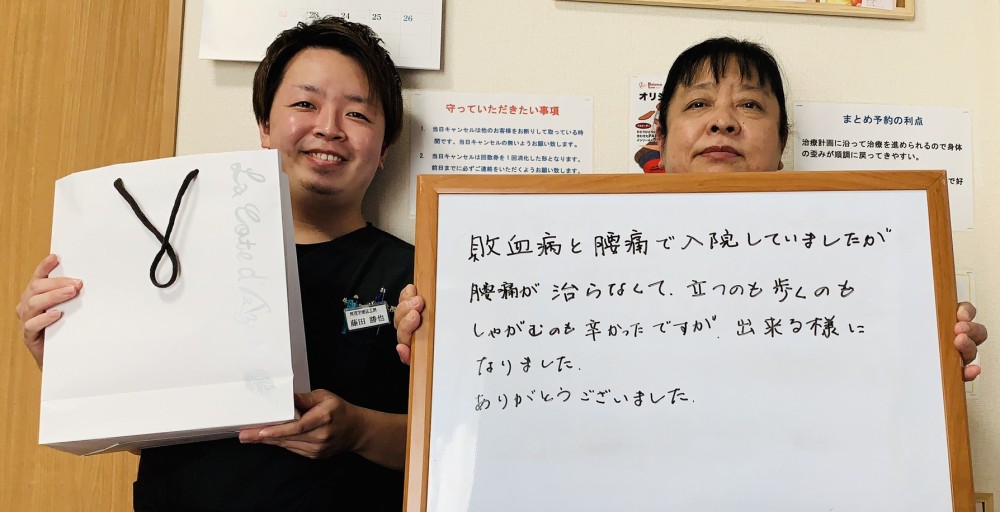 23 24 25 26
守っていただきたい事項
1. 当日キャンセルは他のお客様をお断りして取っている時
間です。当日キャンセルの無いようお願い致します。
2. 当日キャンセルは回数券を1回消化した形となります。
前日までに必ずご連絡をいただくようお願い致します。
オリジ
まとめ予約の利点
治療計画に沿って治療を進められるので身体
の歪みが順調に戻ってきやすい。
で好
La Cote d'Az
藤田 勝也
敗血病と腰痛で入院していましたが
腰痛が治らなくて、立つのも歩くのも
しゃがむのも辛かったですが、出来る様に
なりました.
ありがとうございました.